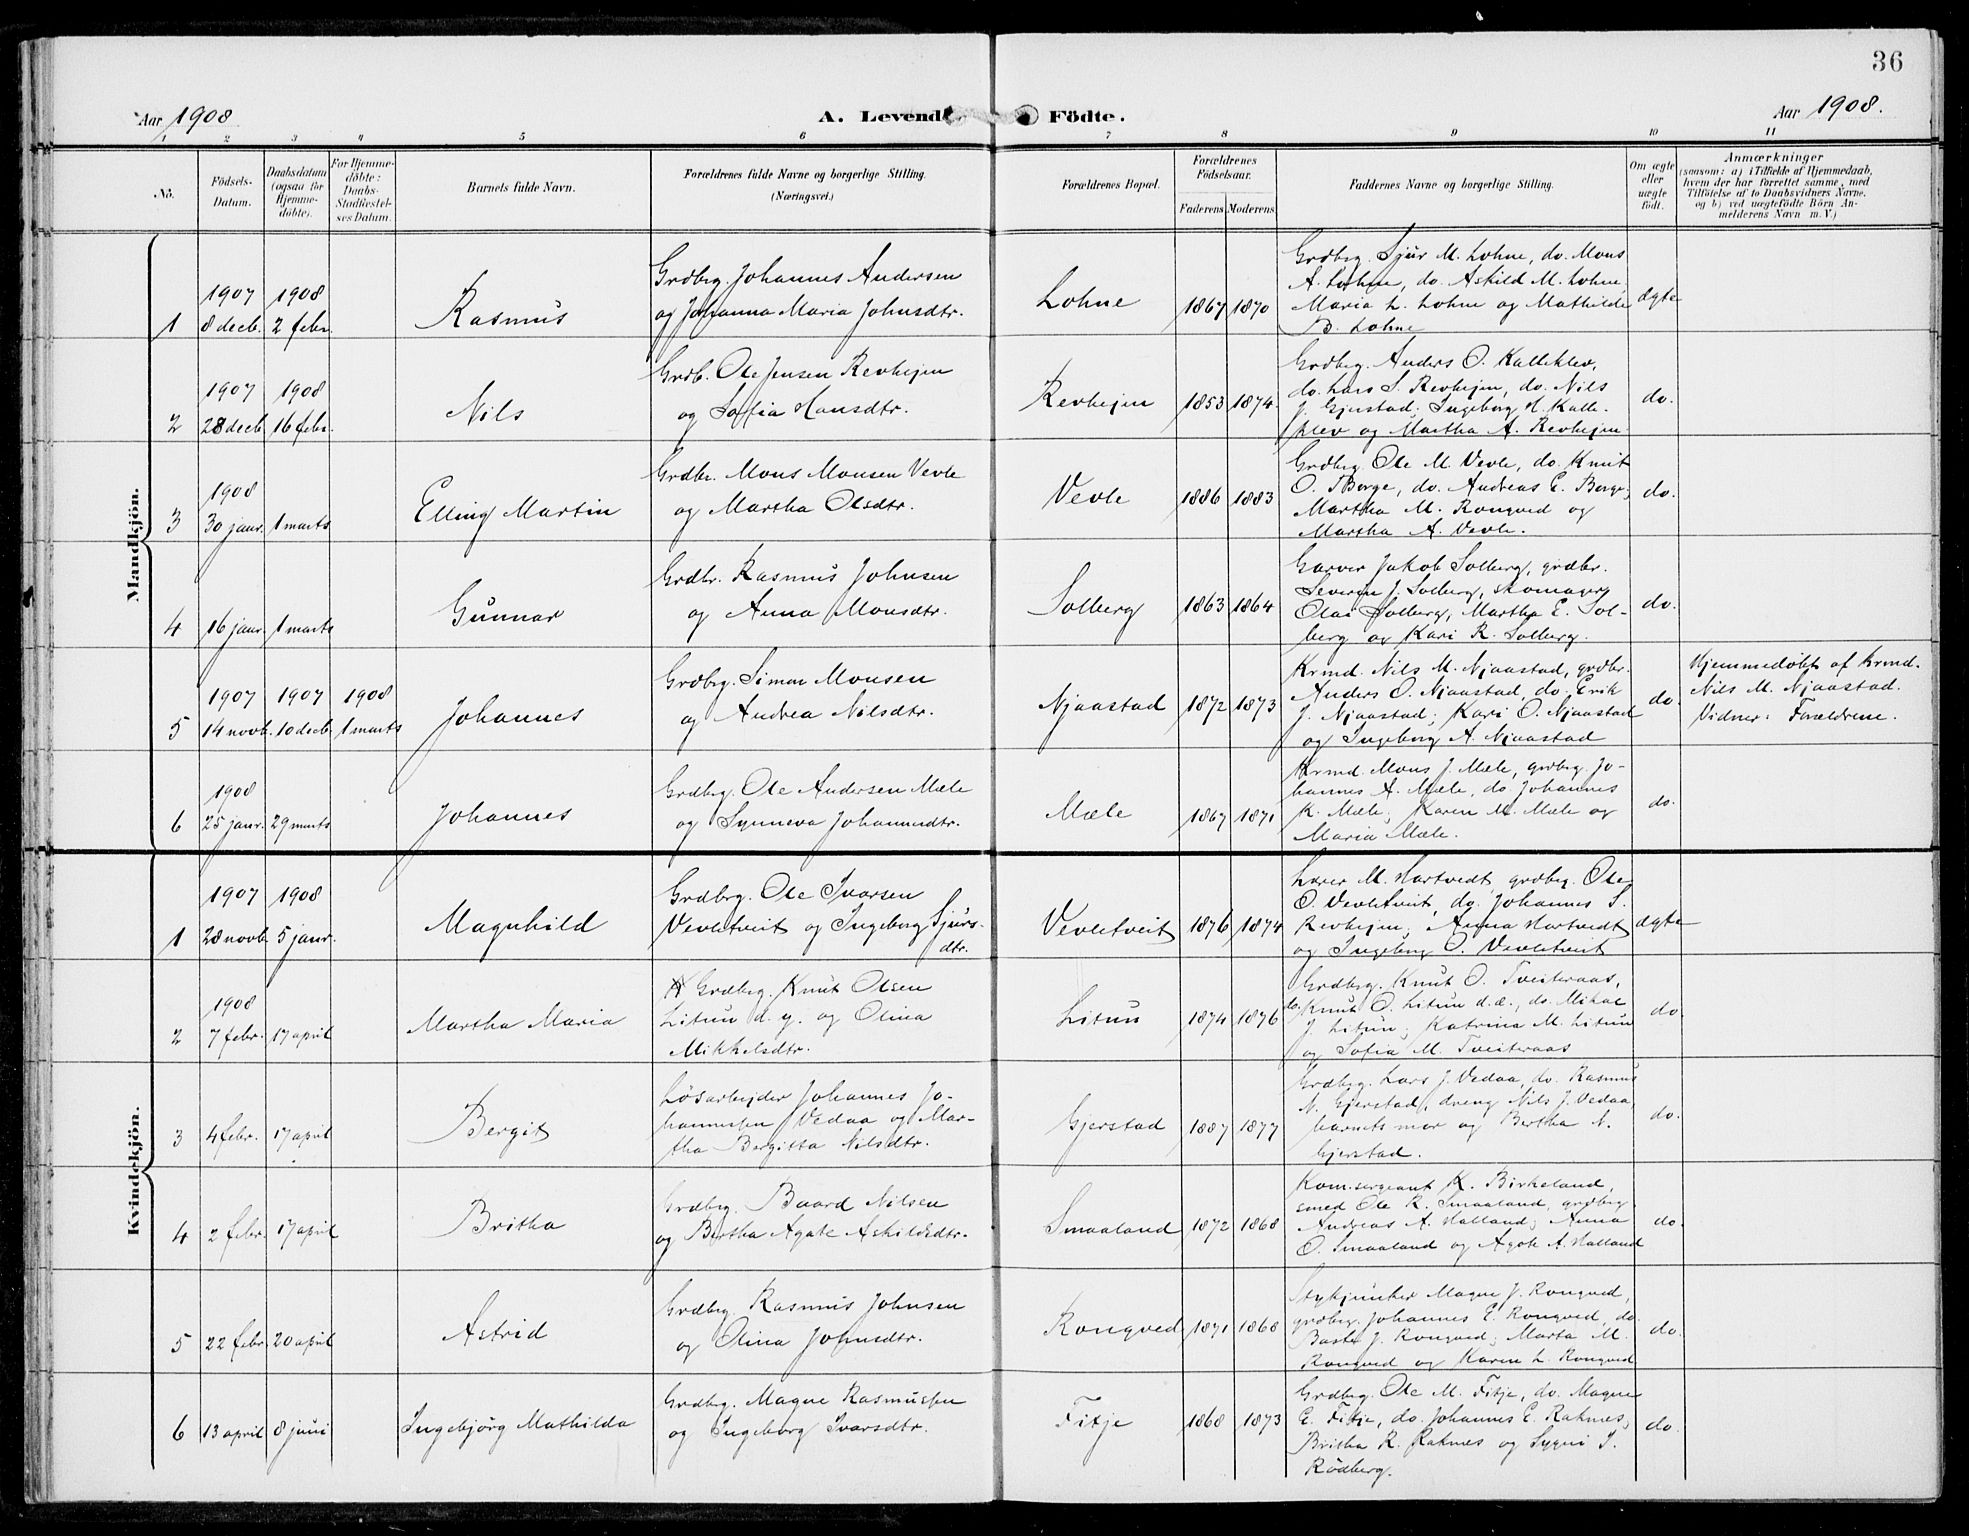 36
Aar 1908.
A. Levende
Födte.
Aar 1908.
1
2
3
4
5
6
7
8
9
10
11
No.
Födsels-
Datum.
Daabsdatum
(ogsaa for
Hjemme-
döbte).
For Hjemme-
döbte:
Daabs-
Stadfæstel-
ses Datum.
Barnets fulde Navn.
Forældrenes fulde Navne og borgerlige Stilling.
(Næringsvei.)
Forældrenes Bopæl.
Forældrenes
Födselsaar.
Faderens
Moderens
Faddernes Navne og borgerlige Stilling.
Om ægte
eller
uægte
födt.
Anmærkninger
(saasom: a) i Tilfælde af Hjemmedaab,
hvem der har forrettet samme, med
Tilföielse af to Daabsvidners Navne.
og b) ved uægtefödte Börn An-
melderens Navn m. V.)
Mandkjön.
1
1907
8 decb.
1908
2 febr.
Rasmus
Grdbrg. Johannes Andersen
og Johanna Maria Johnsdtr.
Lohne
1867
1870
Grdbrg. Sjur M. Lohne, do. Mons
A. Lohne, do. Askild M. Lohne,
Maria L. Lohne og Mathilde
B. Lohne
ægte
2
1907
28 decb.
1908
16 febr.
Nils
Grdb. Ole Jensen Revhejen
og Sofia Hansdtr.
Revhejen
1853
1874.
Grdbrg. Anders O. Kalleklev,
do. Lars S. Revhejen, do. Nils
J. Gjerstad; Ingeborg H. Kalle-
klev og Martha A. Revhejen.
do.
3
1908
30 jaur.
1 marts
Elling Martin
Grdbr. Mons Monsen Vevle
og Martha Olsdtr.
Vevle
1886
1883
Grdbrg. Ole M. Vevle, do. Knut
O. Borge, do. Andreas E. Borge;
Martha M. Rongved og
Martha A. Vevle.
do.
4
16 jaur.
1 marts
Gunnar
Grdbr. Rasmus Johnsen
og Anna Monsdtr.
Solberg
1863
1864
Garver Jakob Solberg, grdbr.
Severin J. Solberg, skomager
Olai Solberg, Martha E. Sol-
berg og Kari R. Solberg.
do.
5
1907
14 novb.
1907
10 decb.
1908
1 marts
Johannes
Grdbrg. Simon Monsen
og Andrea Nilsdtr.
Njaastad
1872
1873
Krmd. Nils M. Njaastad, grdbr.
Anders O. Njaastad, do. Erik
J. Njaastad; Kari O. Njaastad
og Ingeborg A. Njaastad
do.
Hjemmedöbt af krmd.
Nils M. Njaastad.
Vidner: Forældrene.
6
1908
25 janr.
29 marts
Johannes
Grdbrg. Ole Andersen Mæle
og Synneva Johannesdtr.
Mæle
1867
1871
Krmd. Mons J. Mæle, grdbrg. Jo-
hannes A. Mæle, do. Johannes
K. Mæle; Karen M. Mæle og
Maria Mæle.
do.
Kvindekjön.
1
1907
28 novb.
1908
5 janr.
Magnhild
Grdbrg. Ole Ivarsen
Vevletveit og Ingeborg Sjurs-
dtr.
Vevletveit
1876
1874
Lærer M. Hartvedt, grdbrg. Ole
O. Vevletveit, do. Johannes S.
Revhejen; Anna Hartvedt
og Ingeborg O. Vevletveit
ægte
2
1908
7 febr.
17 april
Martha Maria
Grdbrg. Knut Olsen
Litun d. y. og Olina
Mikkelsdtr.
Litun
1874
1876
Grdbrg. Knut O. Tveiteraas,
do. Knut O. Litun d.æ., do. Mikal
J. Litun; Katrina M. Litun
og Sofia M. Tveiteraas
do.
3
4 febr.
17 april
Bergit
Løsarbejder Johannes Jo-
hannessen Vedaa og Mar-
tha Bergitta Nilsdtr.
Gjerstad
1887
1877
Grdbrg. Lars J. Vedaa, do. Rasmus
N. Gjerstad, dreng Nils J. Vedaa,
barnets mor og Bertha N.
Gjerstad.
do.
4
2 febr.
17 april
Britha
Grdbrg. Baard Nilsen
og Bertha Agate Askildsdtr.
Smaaland
1872
1868
Kom.sergeant K. Birkeland,
smed Ole R. Smaaland, grdbrg.
Andreas A. Halland; Anna
O. Smaaland og Agate A. Halland
do.
5
22 febr.
20 april
Astrid
Grdbrg. Rasmus Johnsen
og Olina Johnsdtr.
Rongved
1871
1868
Stykjunker Magne J. Rongved,
grdbrg. Johannes E. Rongved, do.
J. Rongved; Marta M.
Rongved og Karen L. Rongved
do.
6
13 april
8 juni
Ingebjörg Mathilda
Grdbrg. Magne Rasmussen
og Ingeborg Ivarsdtr.
Fitje
1868
1873
Grdbrg. Ole M. Fitje, do. Magne
E. Fitje, do. Johannes E. Raknes;
Britha R. Raknes og Sygni I.
Rödberg.
do.